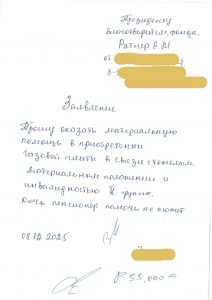 Президенту
Благотворител. фонда.
Ратнер Е М
от
Заявление
Прошу оказать материальную
помощь в приобретении
газовой плиты в связи с тяжелым
материальном положении и
инвалидностью II группы.
Дочь пенсионер помочь не может
08.12.2025
₽ 55,000=